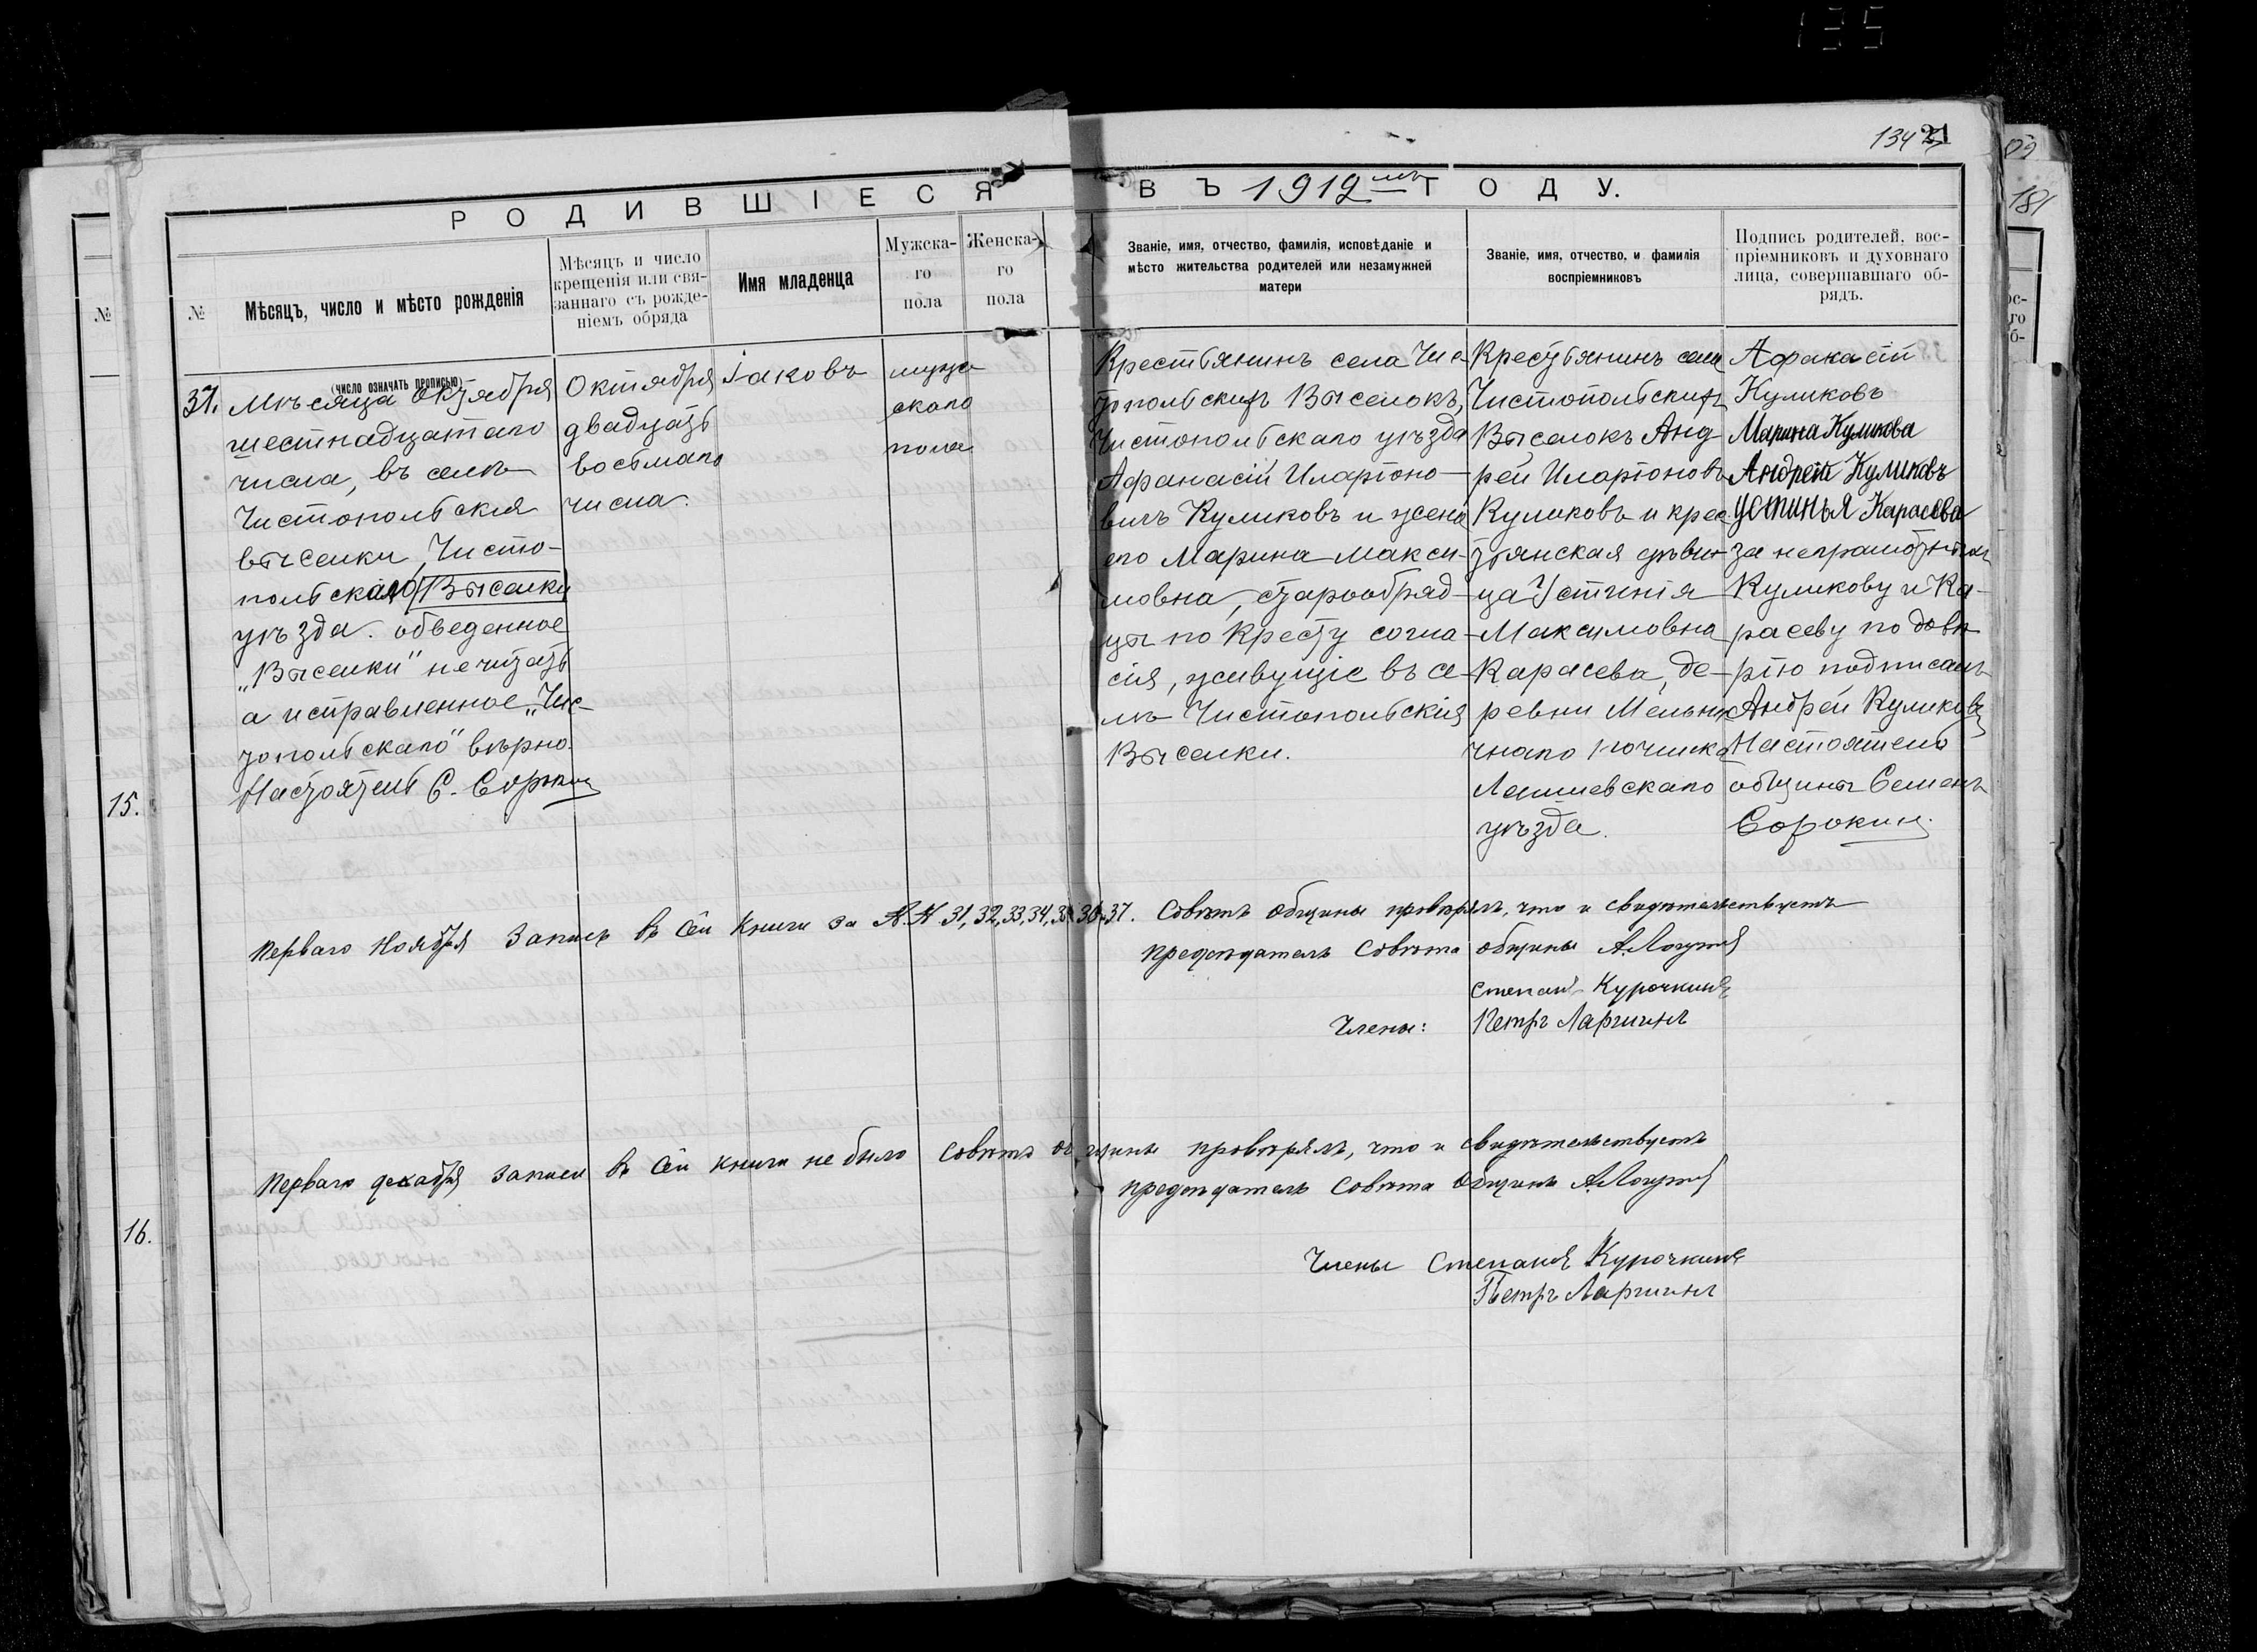 135
134 21
РОДИВШІЕСЯ ВЪ 1912мъ ГОДУ.
№
Мѣсяцъ, число и мѣсто рожденія
(число означать прописью)
Мѣсяцъ и число
крещенія или свя-
заннаго съ рожде-
ніемъ обряда
Имя младенца
Мужска-
го
пола
Женска-
го
пола
Званіе, имя, отчество, фамилія, исповѣданіе и
мѣсто жительства родителей или незамужней
матери
Званіе, имя, отчество, и фамилія
воспріемниковъ
Подпись родителей, вос-
пріемниковъ и духовнаго
лица, совершавшаго об-
рядъ.
37.
Мѣсяца Октября
шестнадцатаго
числа, въ селѣ
Чистопольскія
выселки, Чисто-
польскаго Выселки
уѣзда. обведенное
„Выселки" не читать
а исправленное „Чис-
топольскаго" вѣрно.
Настоятель С. Сорокин
Октября
двадцать
восьмаго
числа.
Іаковъ
мужс
скаго
пола
Крестьянинъ села Чис-
топольскихъ Выселокъ,
Чистопольскаго уѣзда
Афанасій Иларіоно-
вичъ Куликовъ и жена
его Марина Макси-
мовна, старообряд-
цы по Кресту согла-
сія, живущіе въ се-
лѣ Чистопольскія
Выселки.
Крестьянинъ села
Чистопольскихъ
Выселокъ Анд-
рей Иларіоновъ
Куликовъ и крес-
тьянская дѣви-
ца Устинія
Максимовна
Карасева, де-
ревни Мельни
чнаго починка
Лаишевскаго
уѣзда.
Афанасій
Куликовъ
Марина Куликова
Андрей Куликовъ
Устинья Карасева
за неграмотныхъ
Куликову и Ка-
расеву по довѣ
рію подписалъ
Андрей Куликовъ
Настоятель
общины Семенъ
Сорокинъ.
Перваго Ноября Запись въ Сей Книги за №№ 31, 32, 33, 34, 35, 36, 37. Совѣтъ общины провѣрялъ, что и свидѣтельствуетъ
председатель Совѣта общины
Степанъ Курочкинъ
Члены: Петръ
Перваго декабря записи въ Сей книги не было Совѣтъ общины провѣрялъ, что и свидѣтельствуетъ
председатель Совѣта Общины
Члены Степанъ Курочкинъ
Петръ
№
15.
16.
181